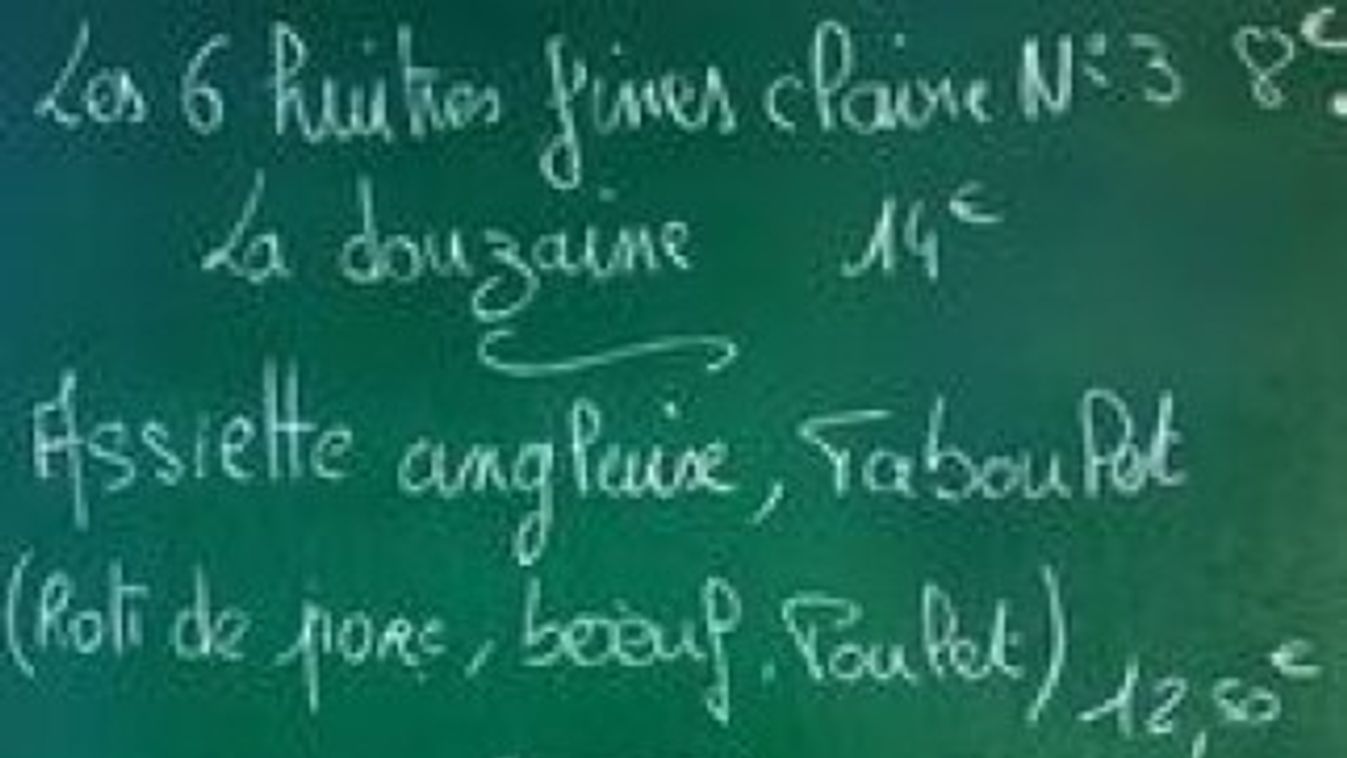 Les 6 huitres fines claire N°3 8€
La douzaine 14€
Assiette anglaise, Taboulet
(Roti de porc, boeuf. Poulet) 12,50€